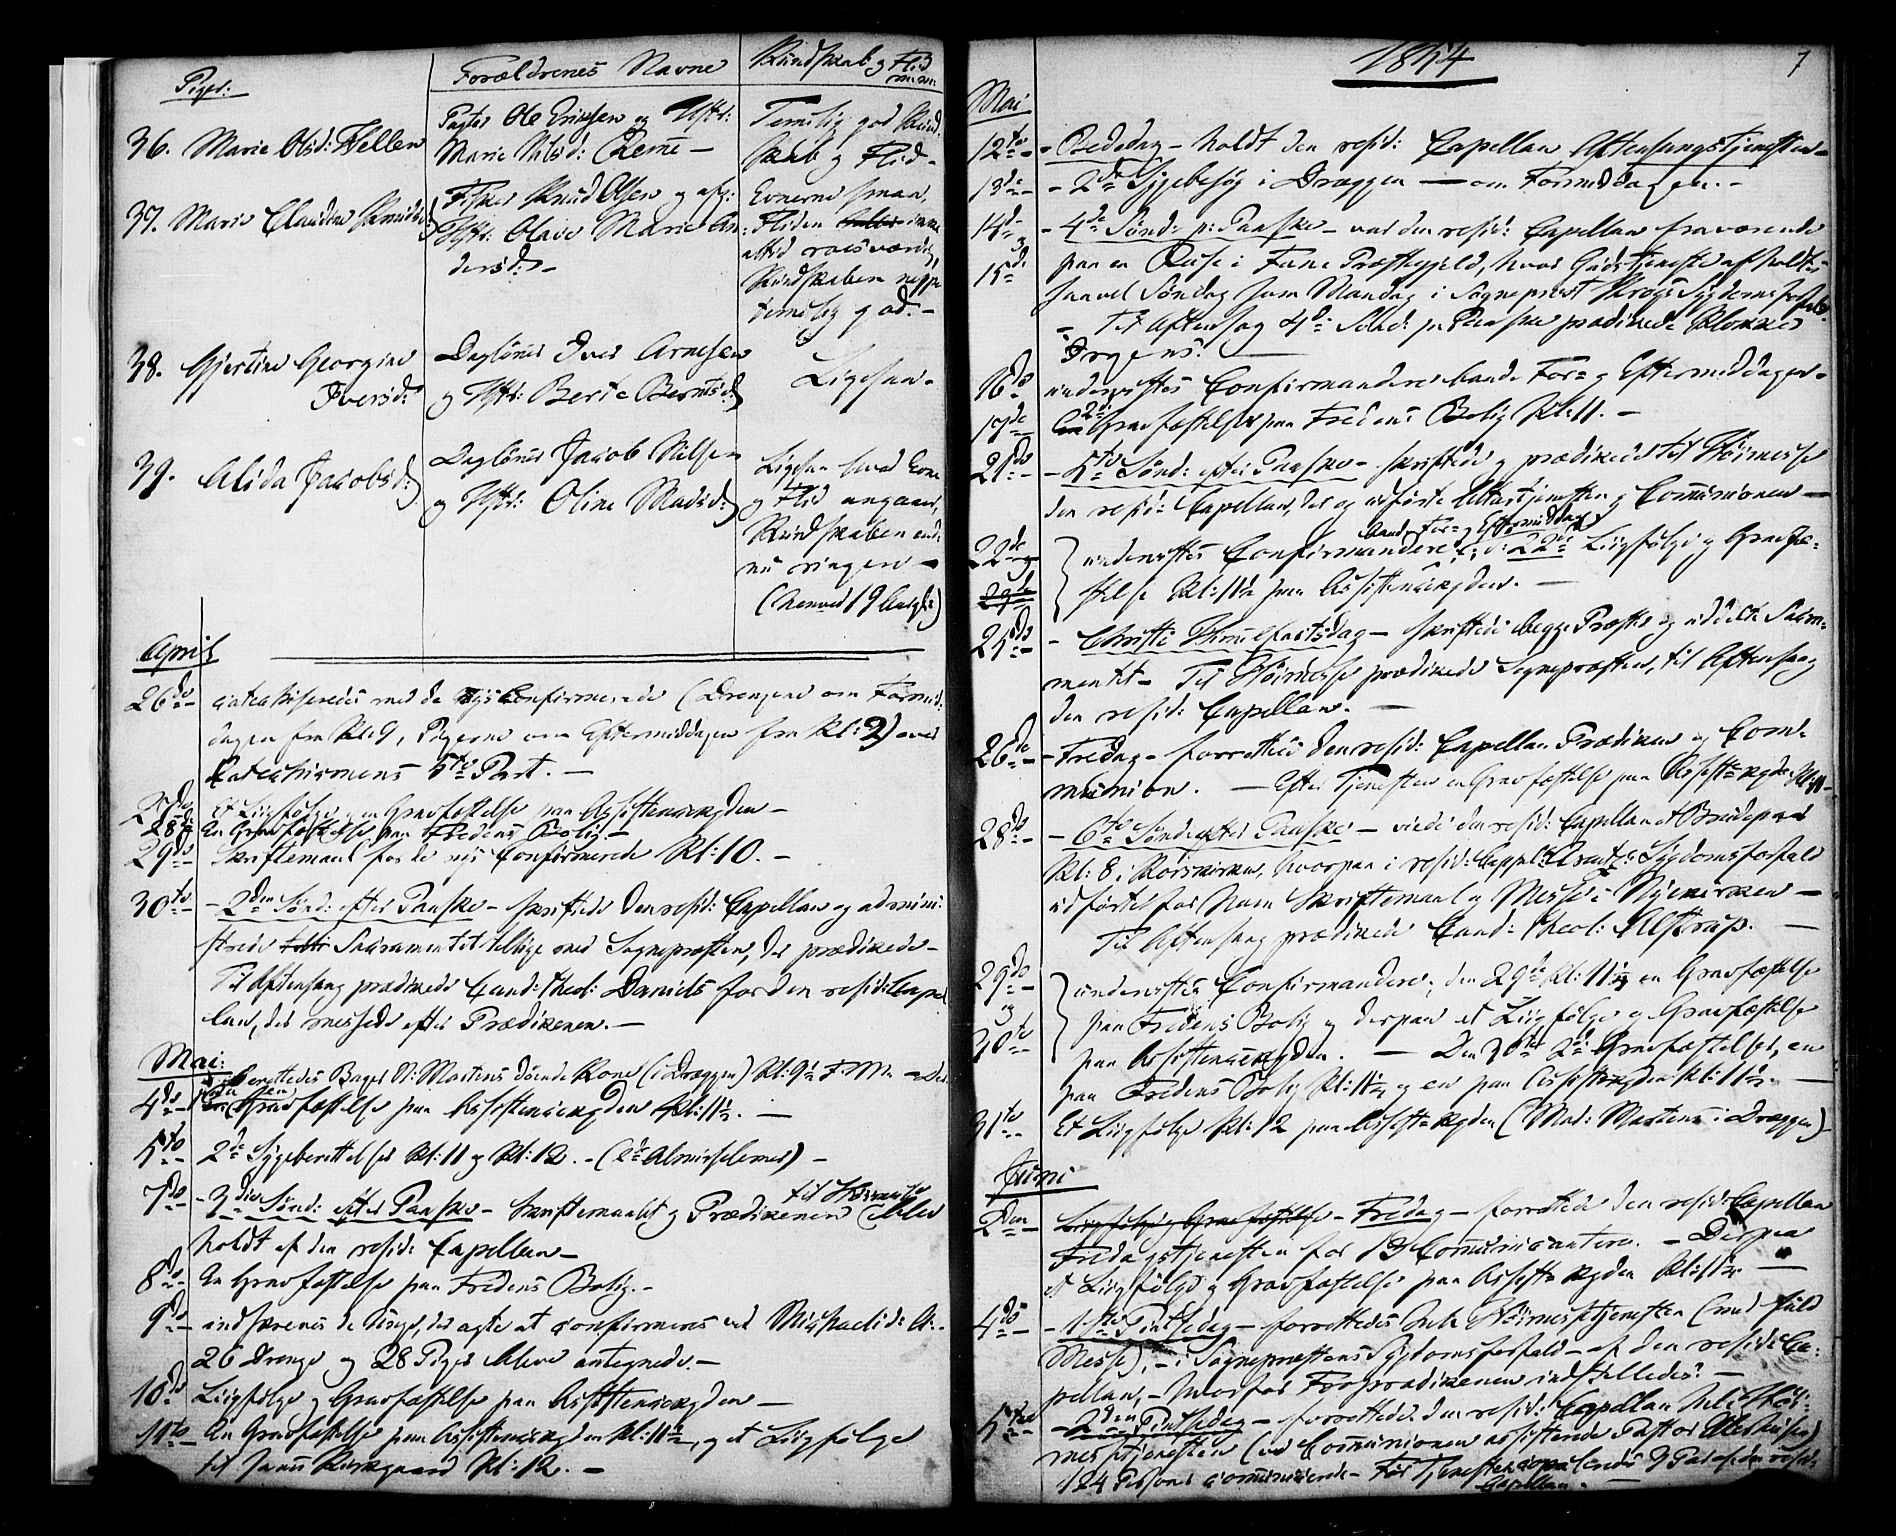 Piger:
Forældrenes Navne
Kundskab og Flid
m. m.
36. Marie Olsd: Hellen
Pagter Ole Eriksen og Hstr:
Marie Nilsd:
Temelig god Kund-
skab og Flid.
37. Marie Claudine Knudsd:
Fisker Knud Olsen og afg:
Hstr: Olave Marie An-
dersd:
Evnerne smaa,
Fliden ikke
altid roesværdig,
Kundskaben neppe
temelig god.
38. Gjertine Georgine
Iversd:
Daglönner Iver Arnesen
og Hstr: Berte Berntsd:
Ligesaa.
39. Alida Jacobsd:
Daglönner Jacob Nilsen
og Hstr: Oline Madsd:
Ligesaa hvad Evne
og Flid angaaer,
Kundskaben end-
nu ringere
April
26de catechiseredes med de nys Confirmerede (Drengene om Formid-
dagen fra Kl: 9, Pigerne om Eftermiddagen fra Kl: 2) over
Catechismens 5te Part.
27de et Liigfølge, en Gravfæstelse paa Assistenskgden
28de En Gravfæstelse paa Fredens Bolig
29de Skriftemaal for de nys Confirmerede Kl: 10.
30te 2den Sönd: efter Paaske - skriftede den resid: Capellan og admini-
strede Sacramentet tillige med Sognepræsten, der prædikede
Til Aftensang prædikede Cand: theol: Daniels for den resid: Capel-
lan, der messede efter Prædikenen.
Mai:
berettedes Bager N: Martens döende Kone (i Dræggen) Kl: 9½ F.M.
4de Gravfæstelse paa Assistenskgden Kl: 11½.
5te 2de Sygeberettelser Kl: 11 og Kl: 12. - (2de Almisselemer)
7de 3die Sönd: efter Paaske - Skriftemaalet og Prædikenen til Höimesse blev
holdt af den resid: Capellan
8de En Gravfæstelse paa Fredens Bolig.
9de indskreves de Unge, der agte at confirmeres ved Michaelid: A:
26 Drenge og 28 Piger bleve antegnede.
10de Liigfølge og Gravfæstelse paa Assistenskgden
11te En Gravfæstelse paa Assistenskgden Kl: 11½, og et Liigfølge
til Kirkegaard Kl: 12.
1854
7
Mai
12te Bededag - holdt den resid: Capellan Aftensangstjenesten
13de 2de Sygebesög i Dræggen om Formiddagen.
14de 4de Sönd: p: Paaske - var den resid: Capellan fraværende
og
15de paa en Reise i Fane Præstegjeld, hvor Gudstjeneste afholdtes
saavel Söndag som Mandag i Sognepræst Krogs Sygdomsforfald.
Til Aftensang 4de Sönd: p: Paaske prædikede Klokker
Irgens.
16de underviistes Confirmanderne baade For= og Eftermiddagen.
17de 2de Gravfæstelser paa Fredens Bolig Kl: 11.
21de 5te Sönd: efter Paaske - skriftede og prædikede til Höimesse
den resid: Capellan, der og udførte Altertjenesten og Communionen
22de underviistes Confirmanderne baade For= og Eftermiddag; d: 22de Liigfølge og Gravfæ-
stelse Kl: 11½ paa Assistenskgden.
25de Christi Himmelfartsdag - skriftede begge Præster og uddelte Sacra-
mentet - Til Höimesse prædikede Sognepræsten, til Aftensang
den resid: Capellan.
26de Fredag - forrettede den resid: Capellan Prædiken og Com-
munion. - Efter Tjenesten en Gravfæstelse paa Assistenskgden Kl: 11
28de 6te Sönd: efter Paaske - viede den resid: Capellan et Brudepar
Kl: 8 i Korskirken, hvorpaa i resid: Capl: Arentz's Sygdomsforfald
udførtes for ham Skriftemaal og Messe i Nykirken
Til Aftensang prædikede Cand: theol: Alstrup.
29de
og
30te
underviistes Confirmanderne; den 29de Kl: 11½ en Gravfæstelse
paa Fredens Bolig og derpaa et Liigfølge og Gravfæstelse
paa Assistenskgden. - Den 30te 2de Gravfæstelser, en
paa Fredens Bolig Kl: 11½ og en paa Assistenskgden Kl: 11½.
31te Et Liigfølge Kl: 12 paa Assistenskgden (Mad: Martens i Dræggen)
Juni
2den Liigfølge og Gravfæstelse - Fredag - forrettede den resid: Capellan
Fredagstjenesten for 13 Communicantere. - Derpaa
et Liigfølge og Gravfæstelse paa Assistenskgden Kl: 11½
4de 1ste Pintsedag - forrettedes hele Höimessetjenesten (med fuld
Messe), - i Sognepræstens Sygdomsforfald - af den resid: Ca-
pellan, - hvorfor Froprædikenen indstilledes.
5te 2den Pintsedag - forrettede den resid: Capellan hele Höi-
messetjenesten (ved Communionen assisterede Pastor
124 Personer communicerede - Før Tjenesten copuleredes 3 Par af den resid:
Capellan.